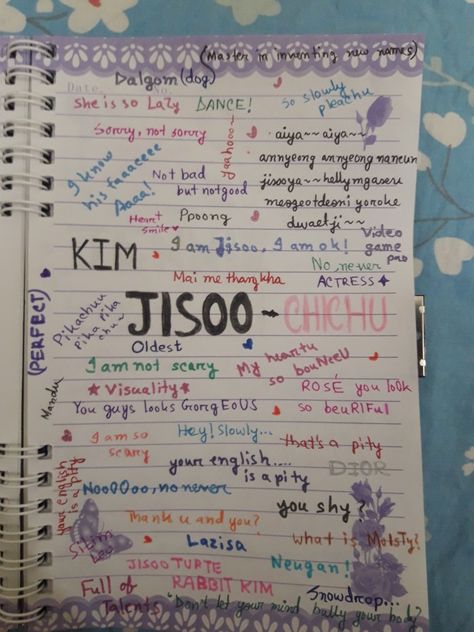 (Master in inventing new names)
Dalgom (dog)
Date. No.
She is so Lazy DANCE! So slowly pikachu
Sorry, not sorry yaahoooo~ aiya~~aiya~~
I know his faaaceee annyeong annyeong naneun
Aaaa! Not bad but notgood jisooya~~hellymgaseu
Heart Smile ♥ Ppoong meogeotdeoni yoroke
dwaetji~
KIM I am Jisoo, I am ok! Video game pro
No, never
Mai me thangkha ACTRESS
(PERFECT) Pikachuu pika pika chu~ JISOO - CHICHU
Oldest
I am not scary My heartu so bouNeeU
Mandu ★ Visuality ★ ROSÉ you look so beuRIFul
You guys looks GorgEoUS
I am so scary Hey! Slowly... that's a pity
your english is a pity your english.... is a pity DIOR
NooOOoo, no never you shy?
Thank u and you? what is MotsTy?
Lazisa
JISOO TURTE Neugan!
Full of Talents RABBIT KIM Snowdrop...
"Don't let your mind bully your body"